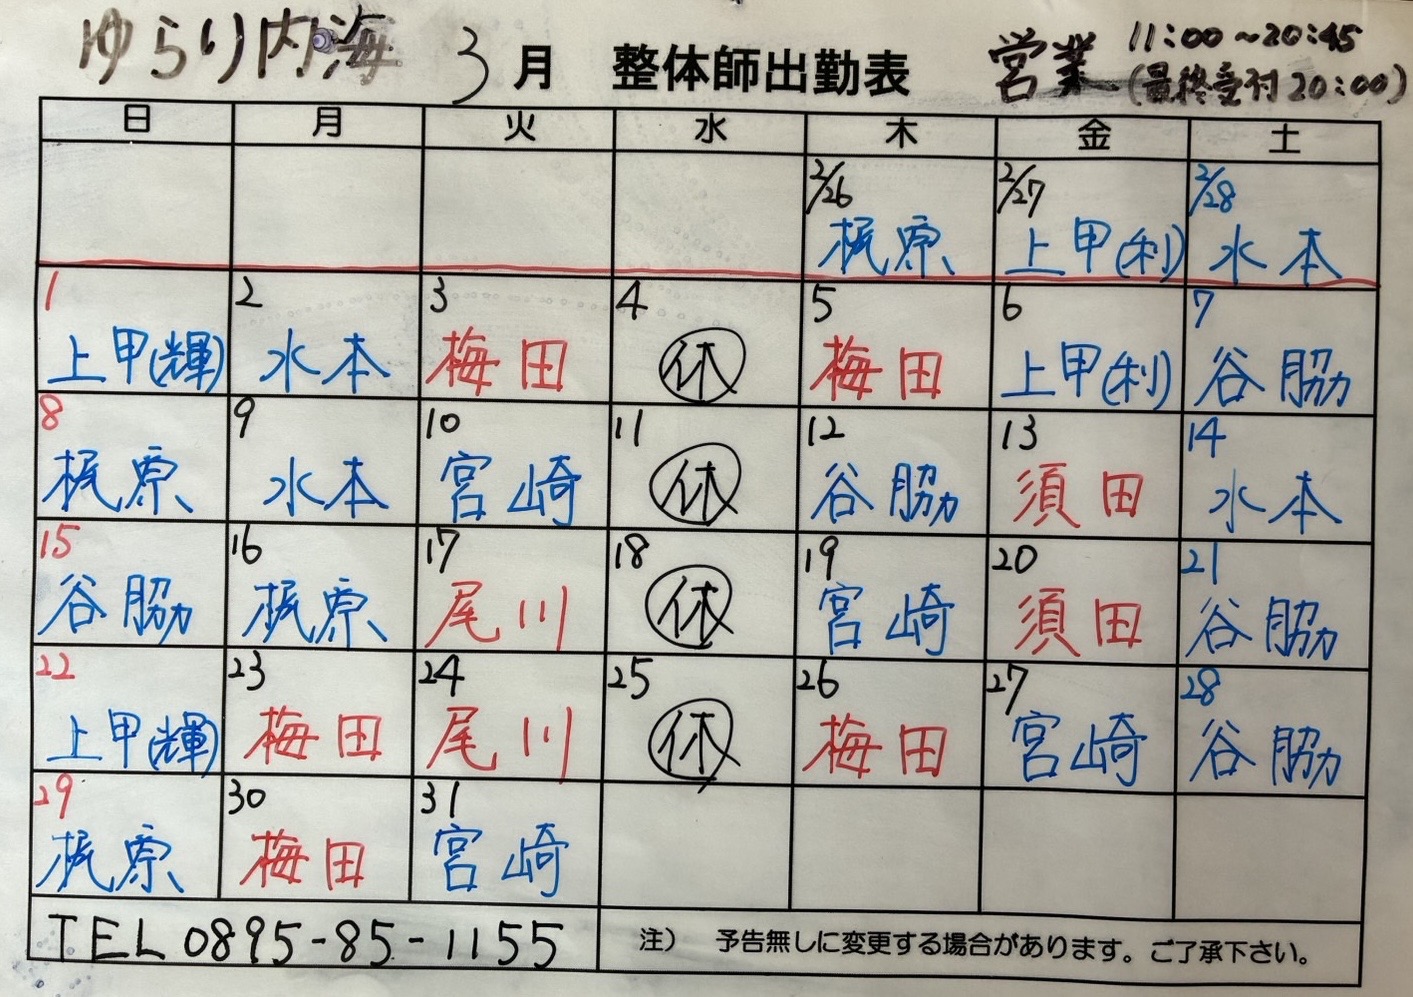 ゆらり内海 3月 整体師出勤表 営業 11:00~20:45
(最終受付20:00)
日 月 火 水 木 金 土
2/26 2/27 2/28
梶原 上甲(利) 水本
1 2 3 4 5 6 7
上甲(輝) 水本 梅田 休 梅田 上甲(利) 谷脇
8 9 10 11 12 13 14
梶原 水本 宮崎 休 谷脇 須田 水本
15 16 17 18 19 20 21
谷脇 梶原 尾川 休 宮崎 須田 谷脇
22 23 24 25 26 27 28
上甲(輝) 梅田 尾川 休 梅田 宮崎 谷脇
29 30 31
梶原 梅田 宮崎
TEL 0895-85-1155
注） 予告無しに変更する場合があります。ご了承下さい。